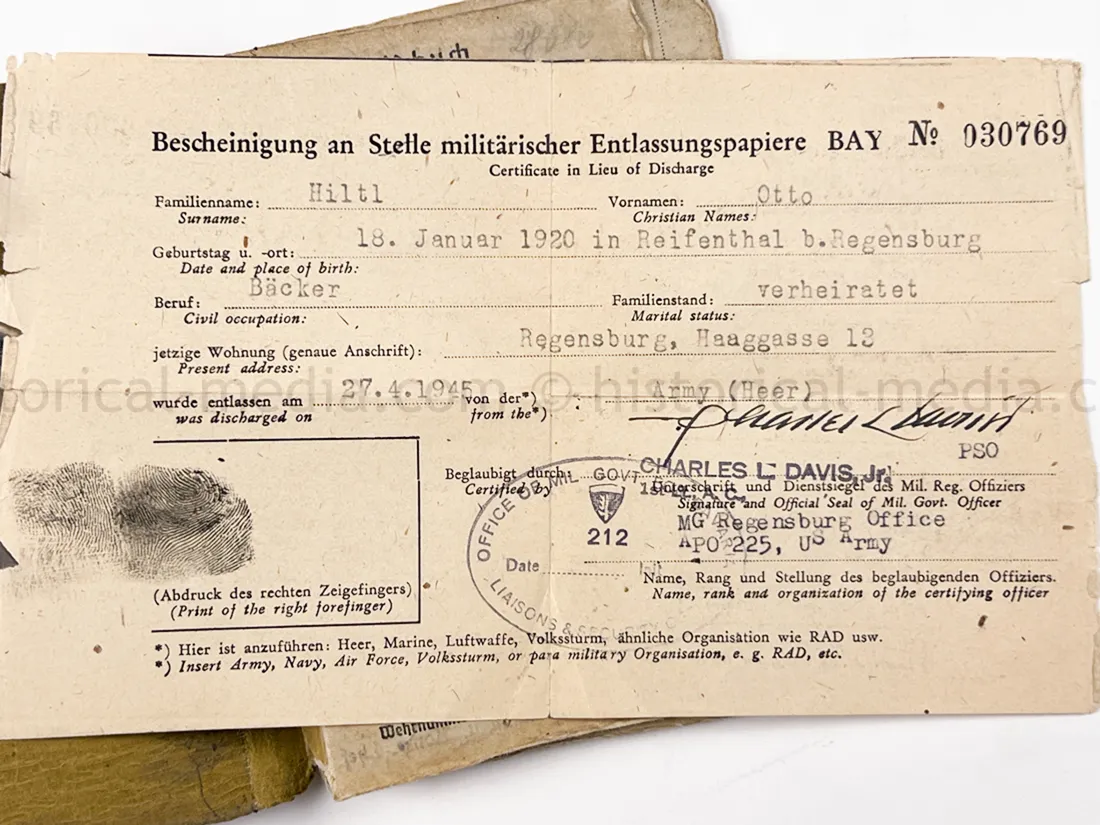 Bescheinigung an Stelle militärischer Entlassungspapiere BAY № 030769
Certificate in Lieu of Discharge
Familienname: Hiltl Vornamen: Otto
Surname: Christian Names:
Geburtstag u. -ort: 18. Januar 1920 in Reifenthal b.Regensburg
Date and place of birth:
Beruf: Bäcker Familienstand: verheiratet
Civil occupation: Marital status:
jetzige Wohnung (genaue Anschrift): Regensburg, Haaggasse 13
Present address:
historical-media.com © historical-media.c
wurde entlassen am 27.4.1945 von der*) Army (Heer)
was discharged on from the*)
PSO
Beglaubigt durch: CHARLES L. DAVIS, Jr.
Certified by Unterschrift und Dienstsiegel des Mil. Reg. Offiziers
Signature and Official Seal of Mil. Govt. Officer
OFFICE OF MIL GOVT
212
Date
LIAISONS & SECURITY
MG Regensburg Office
APO 225, US Army
Name, Rang und Stellung des beglaubigenden Offiziers.
Name, rank and organization of the certifying officer
(Abdruck des rechten Zeigefingers)
(Print of the right forefinger)
*) Hier ist anzuführen: Heer, Marine, Luftwaffe, Volkssturm, ähnliche Organisation wie RAD usw.
*) Insert Army, Navy, Air Force, Volkssturm, or para military Organisation, e. g. RAD, etc.